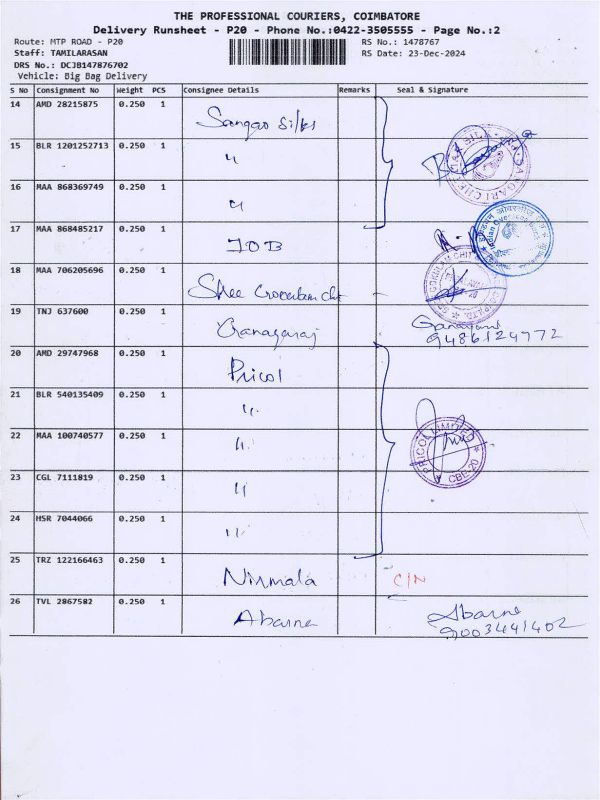 THE PROFESSIONAL COURIERS, COIMBATORE
Delivery Runsheet - P20 - Phone No.:0422-3505555 - Page No.:2
Route: MTP ROAD - P20 RS No.: 1478767
Staff: TAMILARASAN RS Date: 23-Dec-2024
DRS No.: DCJB147876702
Vehicle: Big Bag Delivery
S No Consignment No Weight PCS Consignee Details Remarks Seal & Signature
14 AMD 28215875 0.250 1 Silks
15 BLR 1201252713 0.250 1 "
16 MAA 868369749 0.250 1 "
17 MAA 868485217 0.250 1 IOB
18 MAA 706205696 0.250 1 Shree
19 TNJ 637600 0.250 1
9486124772
20 AMD 29747968 0.250 1 Pricol
21 BLR 540135409 0.250 1 "
22 MAA 100740577 0.250 1 "
PRICOL LIMITED
CBE-20
23 CGL 7111819 0.250 1 "
24 HSR 7044066 0.250 1 "
25 TRZ 122166463 0.250 1 Nirmala C/N
26 TVL 2867582 0.250 1 Abarna Abarna
9003441402